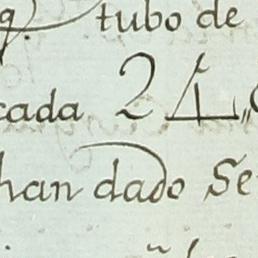 tubo de
cada 24
han dado Se